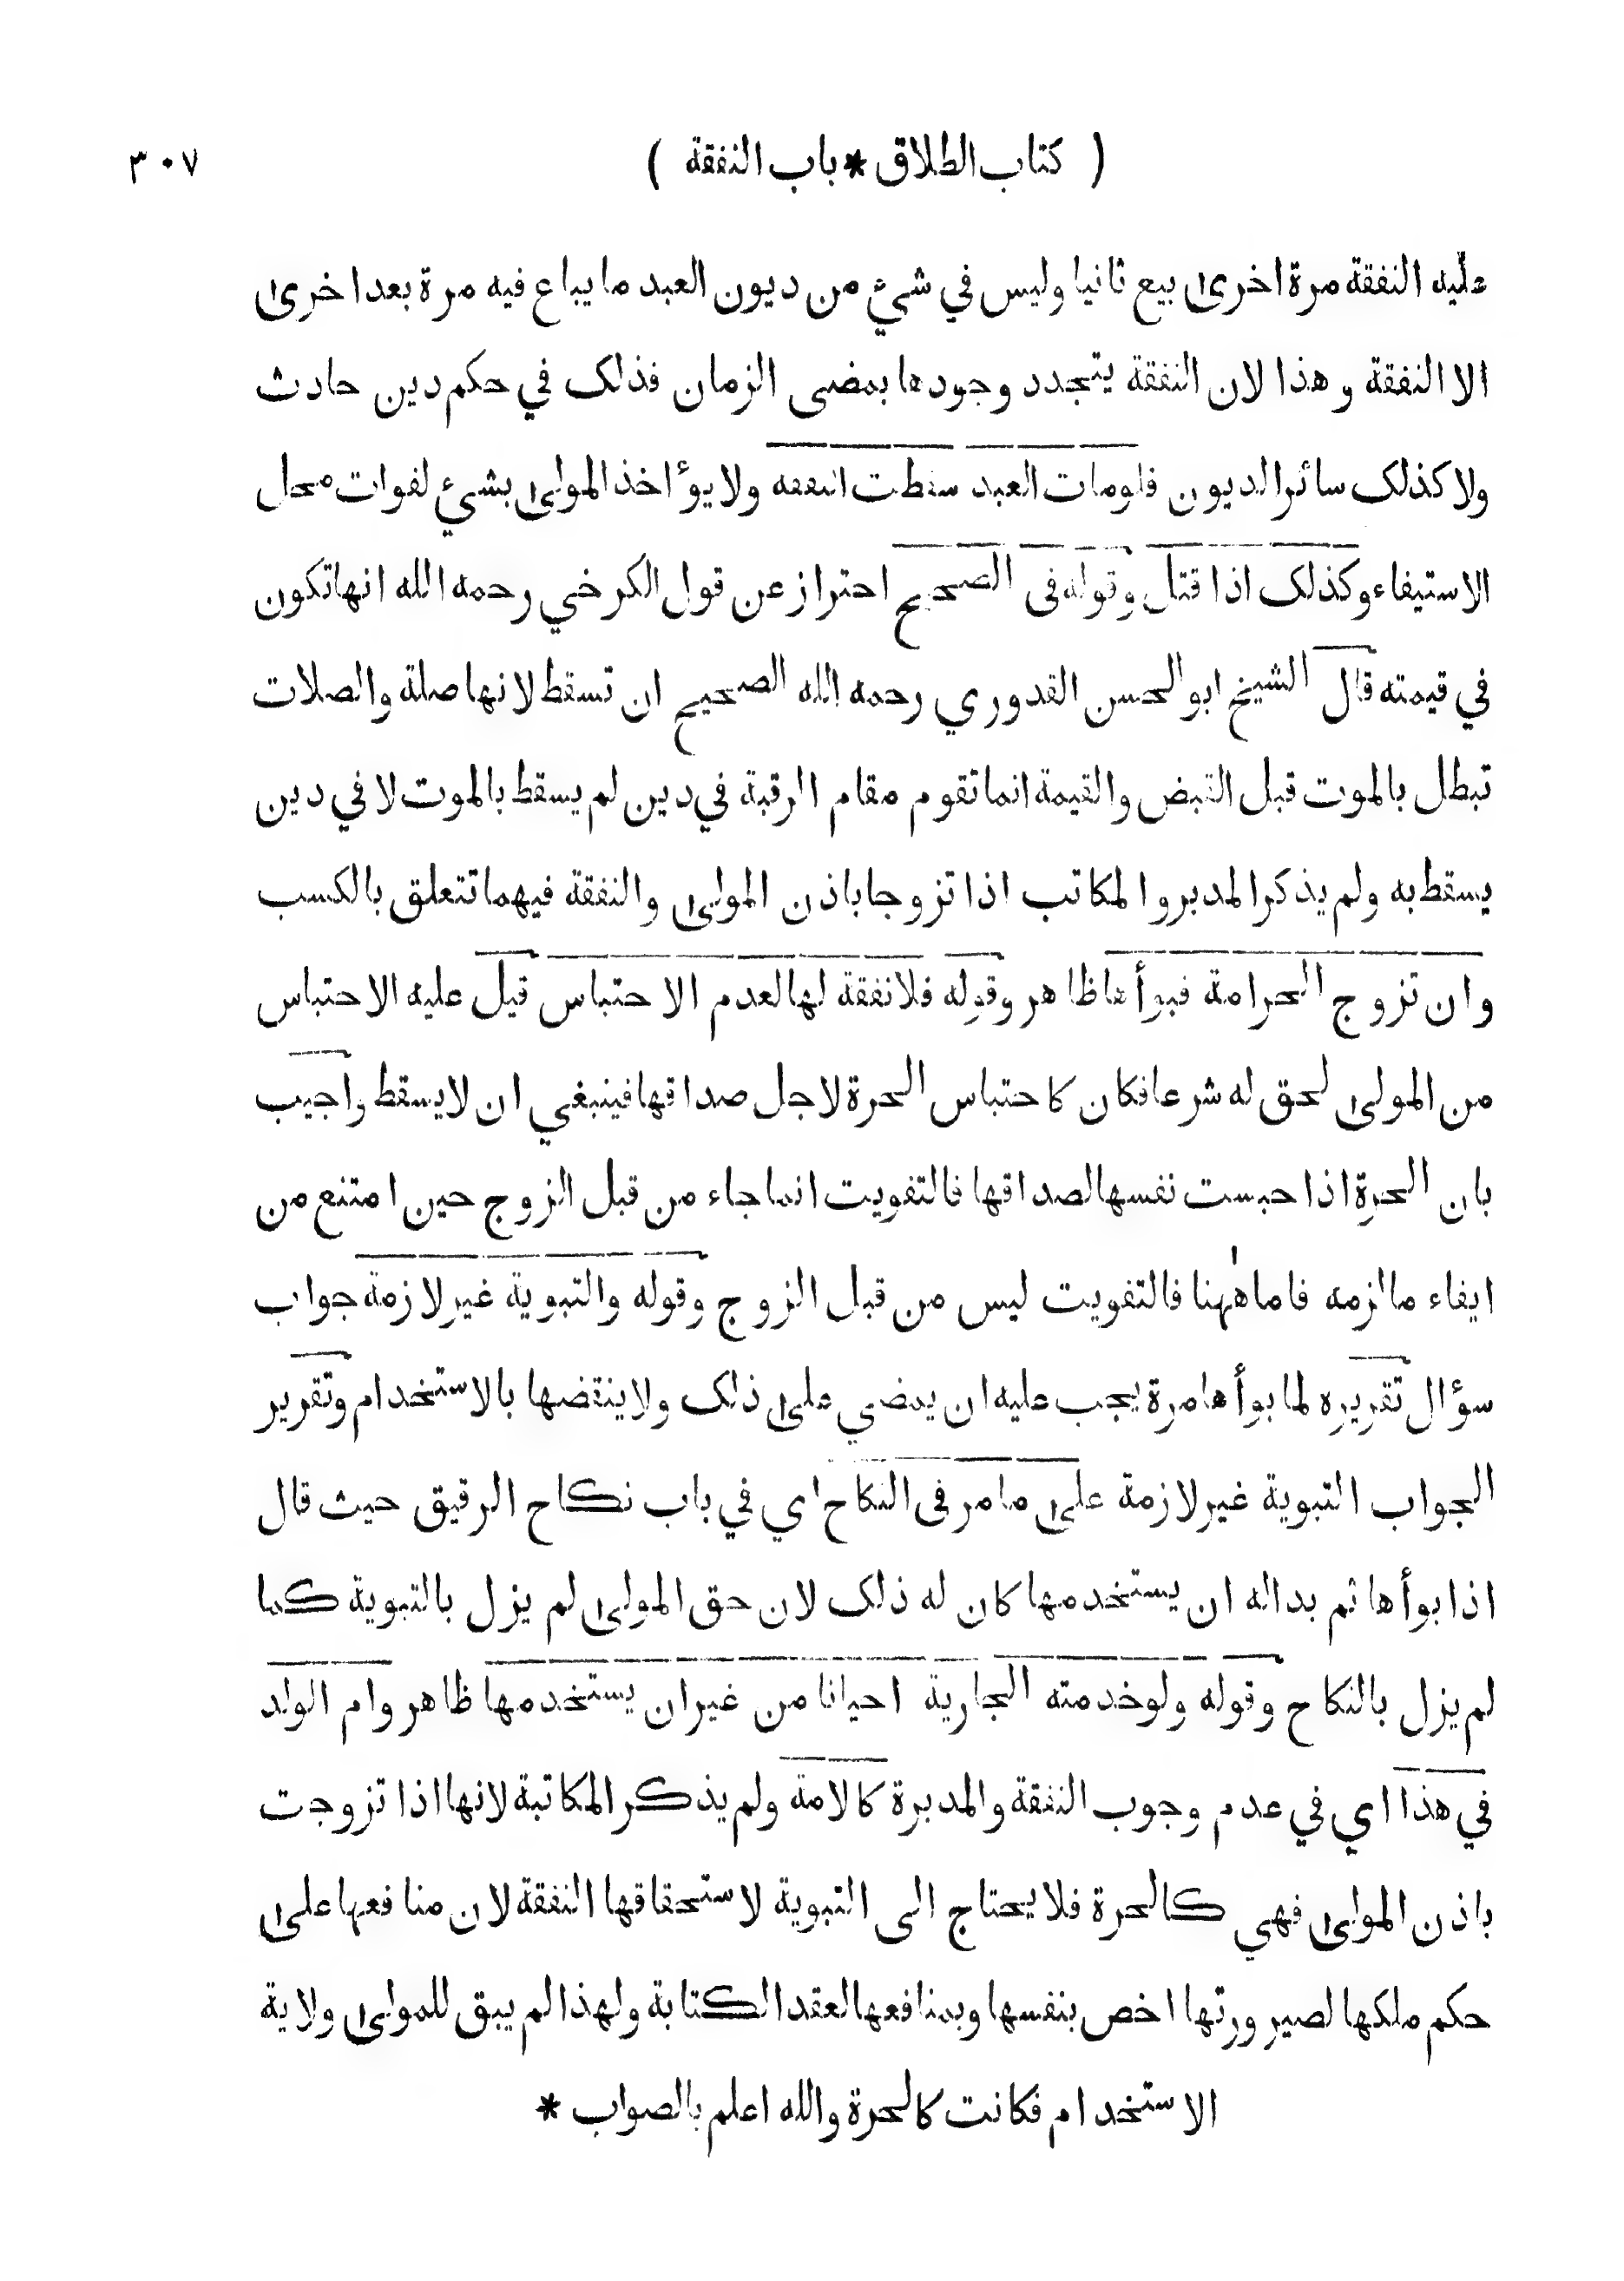 ( كتاب الطلاق * باب النفقة ) ٣٠٧
عليه النفقة مرة اخرى بيع ثانيا وليس في شيء من ديون العبد ما يباع فيه مرة بعد اخرى
الا النفقة وهذا لان النفقة يتجدد وجودها بمضى الزمان فذلك في حكم دين حادث
ولا كذلك سائر الديون فلومات العبد سقطت النفقه ولا يؤاخذ المولى بشيء لفوات محل
الاستيفاء وكذلك اذا قتل وقوله فى الصحيح احتراز عن قول الكرخي رحمه الله انها تكون
في قيمته قال الشيخ ابو الحسن القدوري رحمه الله الصحيح ان تسقط لانها صلة والصلات
تبطل بالموت قبل القبض والقيمة انما تقوم مقام الرقبة في دين لم يسقط بالموت لا في دين
يسقط به ولم يذكر المدبر والمكاتب اذا تزوجا باذن المولى والنفقة فيهما تتعلق بالكسب
وان تزوج الحر امة فبوأها ظاهر وقوله فلا نفقة لها لعدم الاحتباس قيل عليه الاحتباس
من المولى لحق له شرعا فكان كاحتباس الحرة لاجل صداقها فينبغي ان لا يسقط واجيب
بان الحرة اذا حبست نفسها لصداقها فالتفويت انما جاء من قبل الزوج حين امتنع من
ايفاء ما الزمه فاما ههنا فالتفويت ليس من قبل الزوج وقوله والتبوية غير لازمة جواب
سؤال تقريره لما بوأها مرة يجب عليه ان يمضي على ذلك ولا ينقضها بالاستخدام وتقرير
الجواب التبوية غير لازمة على ما مر فى النكاح اي في باب نكاح الرقيق حيث قال
اذا بوأها ثم بدا له ان يستخدمها كان له ذلك لان حق المولى لم يزل بالتبوية كما
لم يزل بالنكاح وقوله ولو خدمته الجارية احيانا من غير ان يستخدمها ظاهر وام الولد
في هذا اي في عدم وجوب النفقة والمدبرة كالامة ولم يذكر المكاتبة لانها اذا تزوجت
باذن المولى فهي كالحرة فلا يحتاج الى التبوية لاستحقاقها النفقة لان منافعها على
حكم ملكها لصيرورتها اخص بنفسها وبمنافعها لعقد الكتابة ولهذا لم يبق للمولى ولاية
الاستخدام فكانت كالحرة والله اعلم بالصواب *